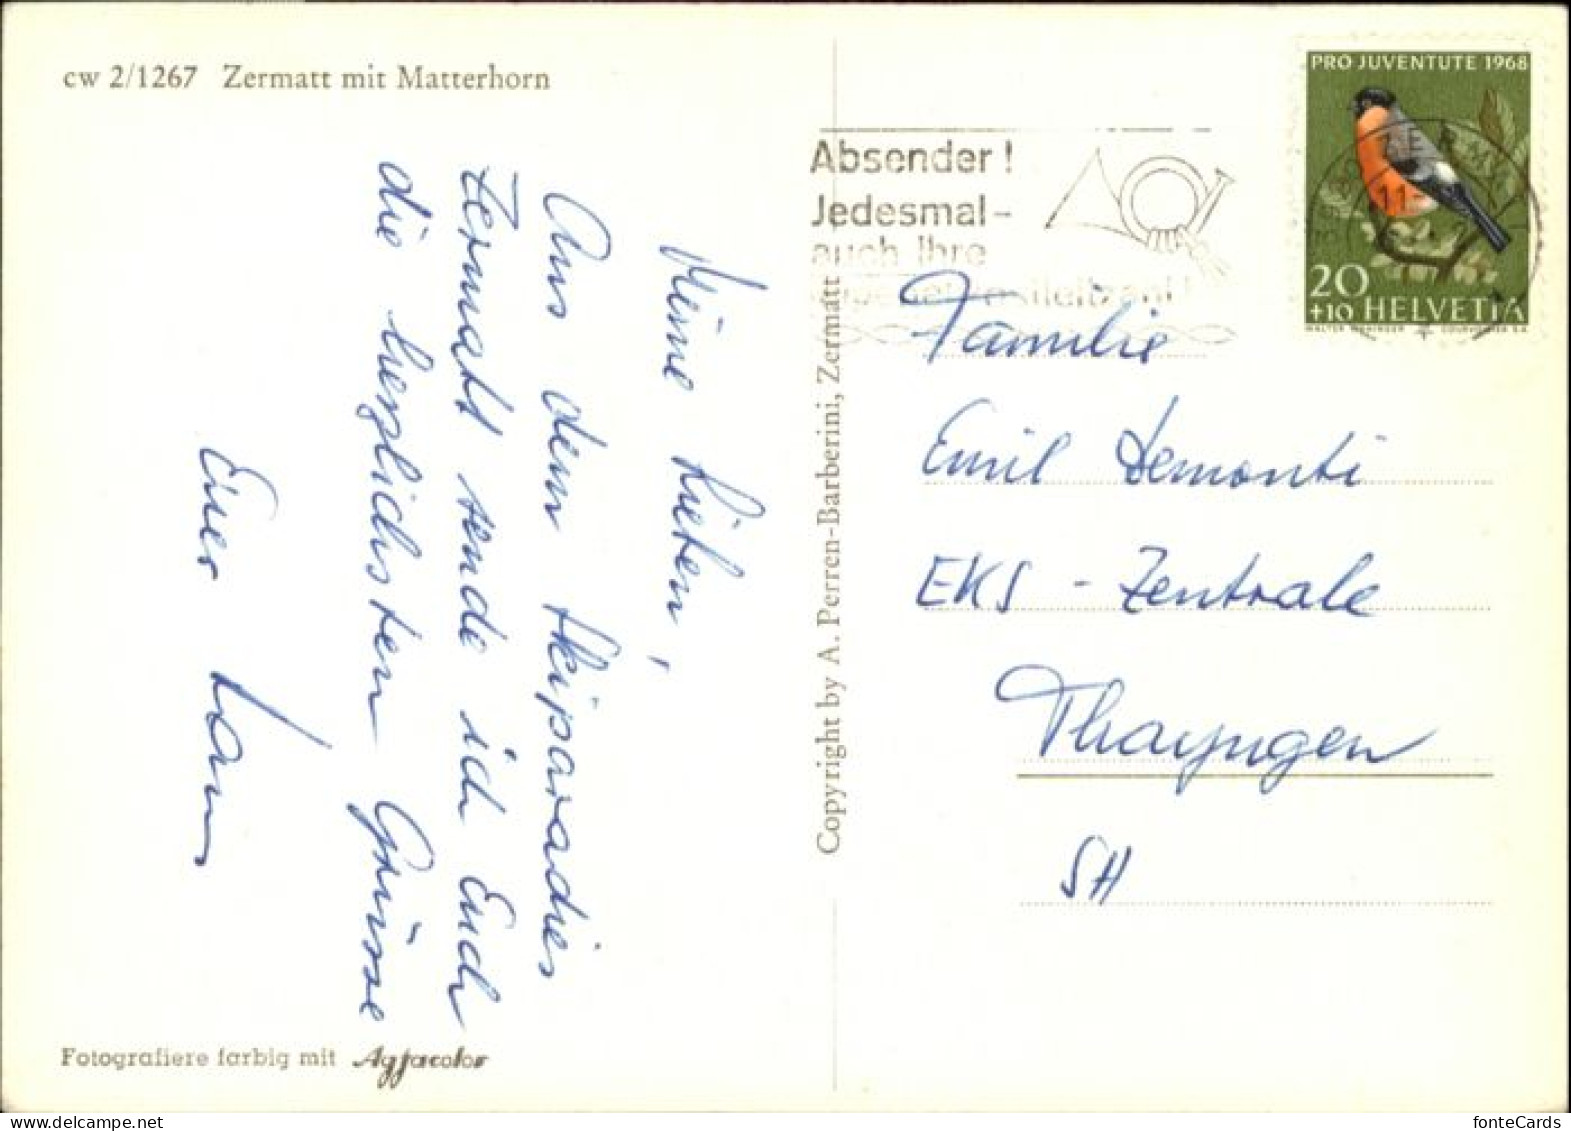 cw 2/1267 Zermatt mit Matterhorn
Meine Lieben,
Aus dem Skiparadies
Zermatt sende ich Euch
die herzlichsten Grüsse
Euer
Fotografiere farbig mit Agfacolor
Copyright by A. Perren-Barberini, Zermatt
Absender!
Jedesmal-
auch Ihre
Postleitzahl!
PRO JUVENTUTE 1968
20
+10 HELVETIA
COURVOISIER S.A.
Familie
Emil Demonti
EKS - Zentrale
Thayngen
SH
fonteCards
www.delcampe.net